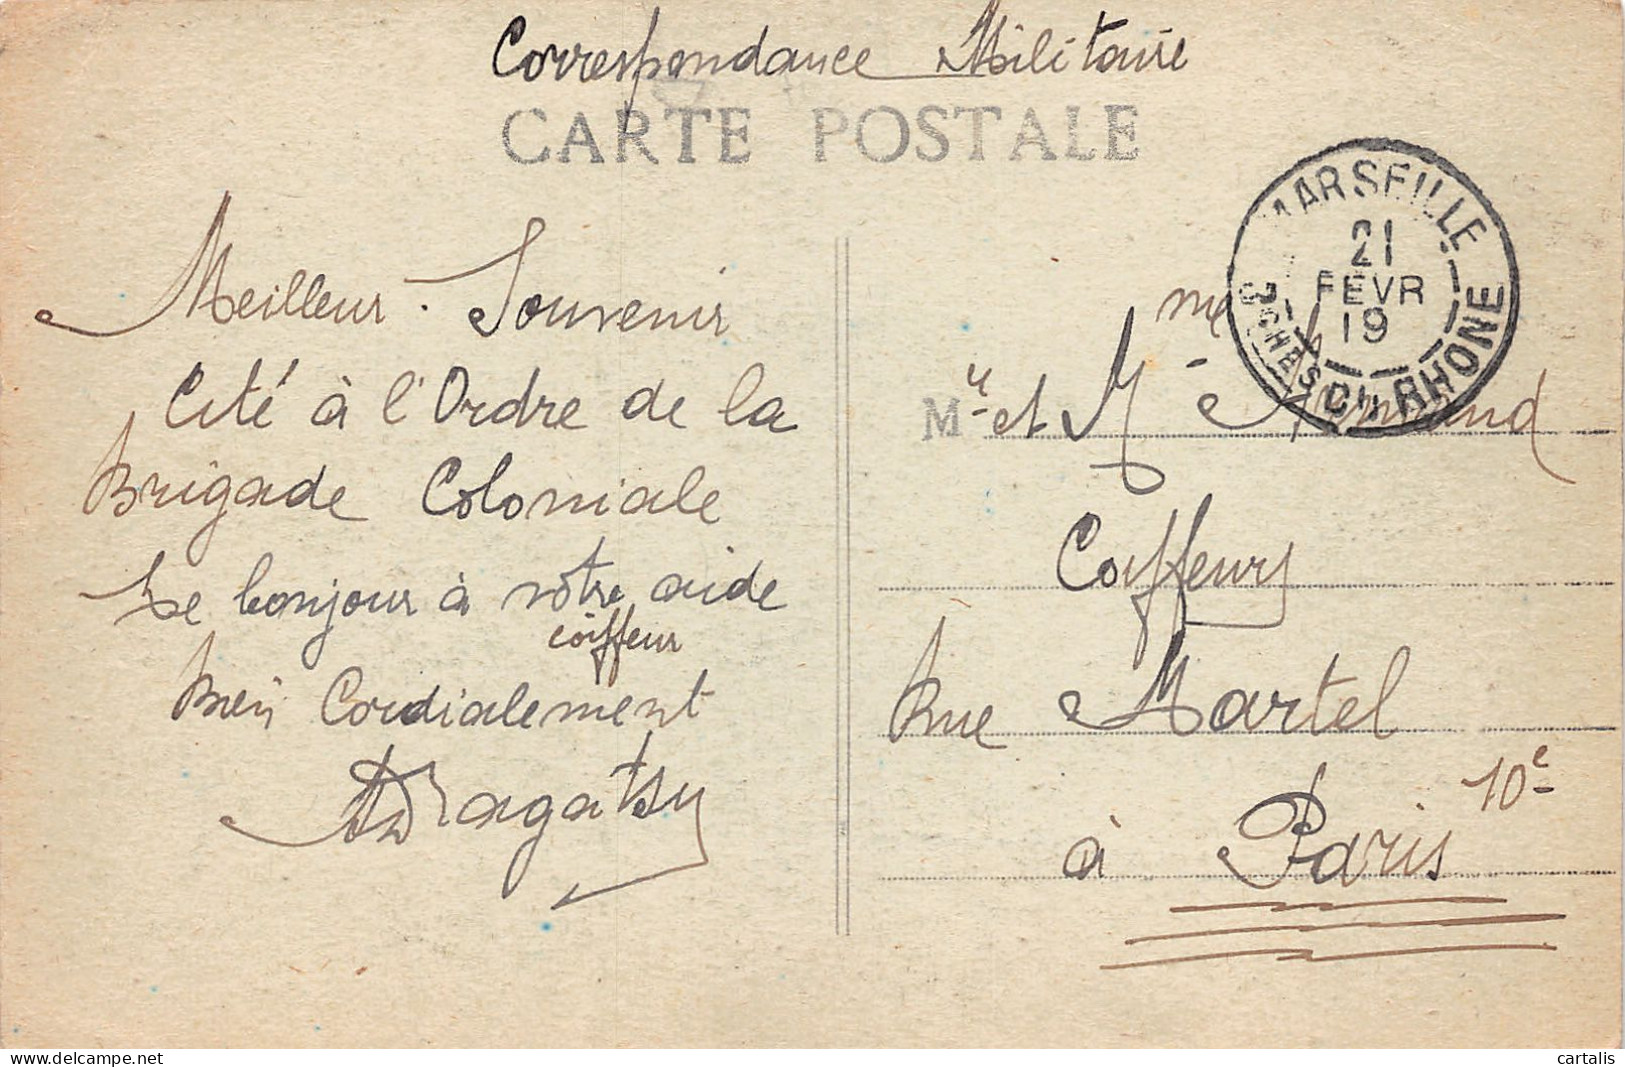 Correspondance Militaire
CARTE POSTALE
Meilleur Souvenir
Cité à l'Ordre de la
Brigade Coloniale
Le bonjour à votre aide
coiffeur
Bien Cordialement
MARSEILLE
21
FEVR
19
BCHES DU RHONE
Mr et Mme Armand
Coiffeurs
Rue Martel
10e
à Paris
delcampe.net
cartalis